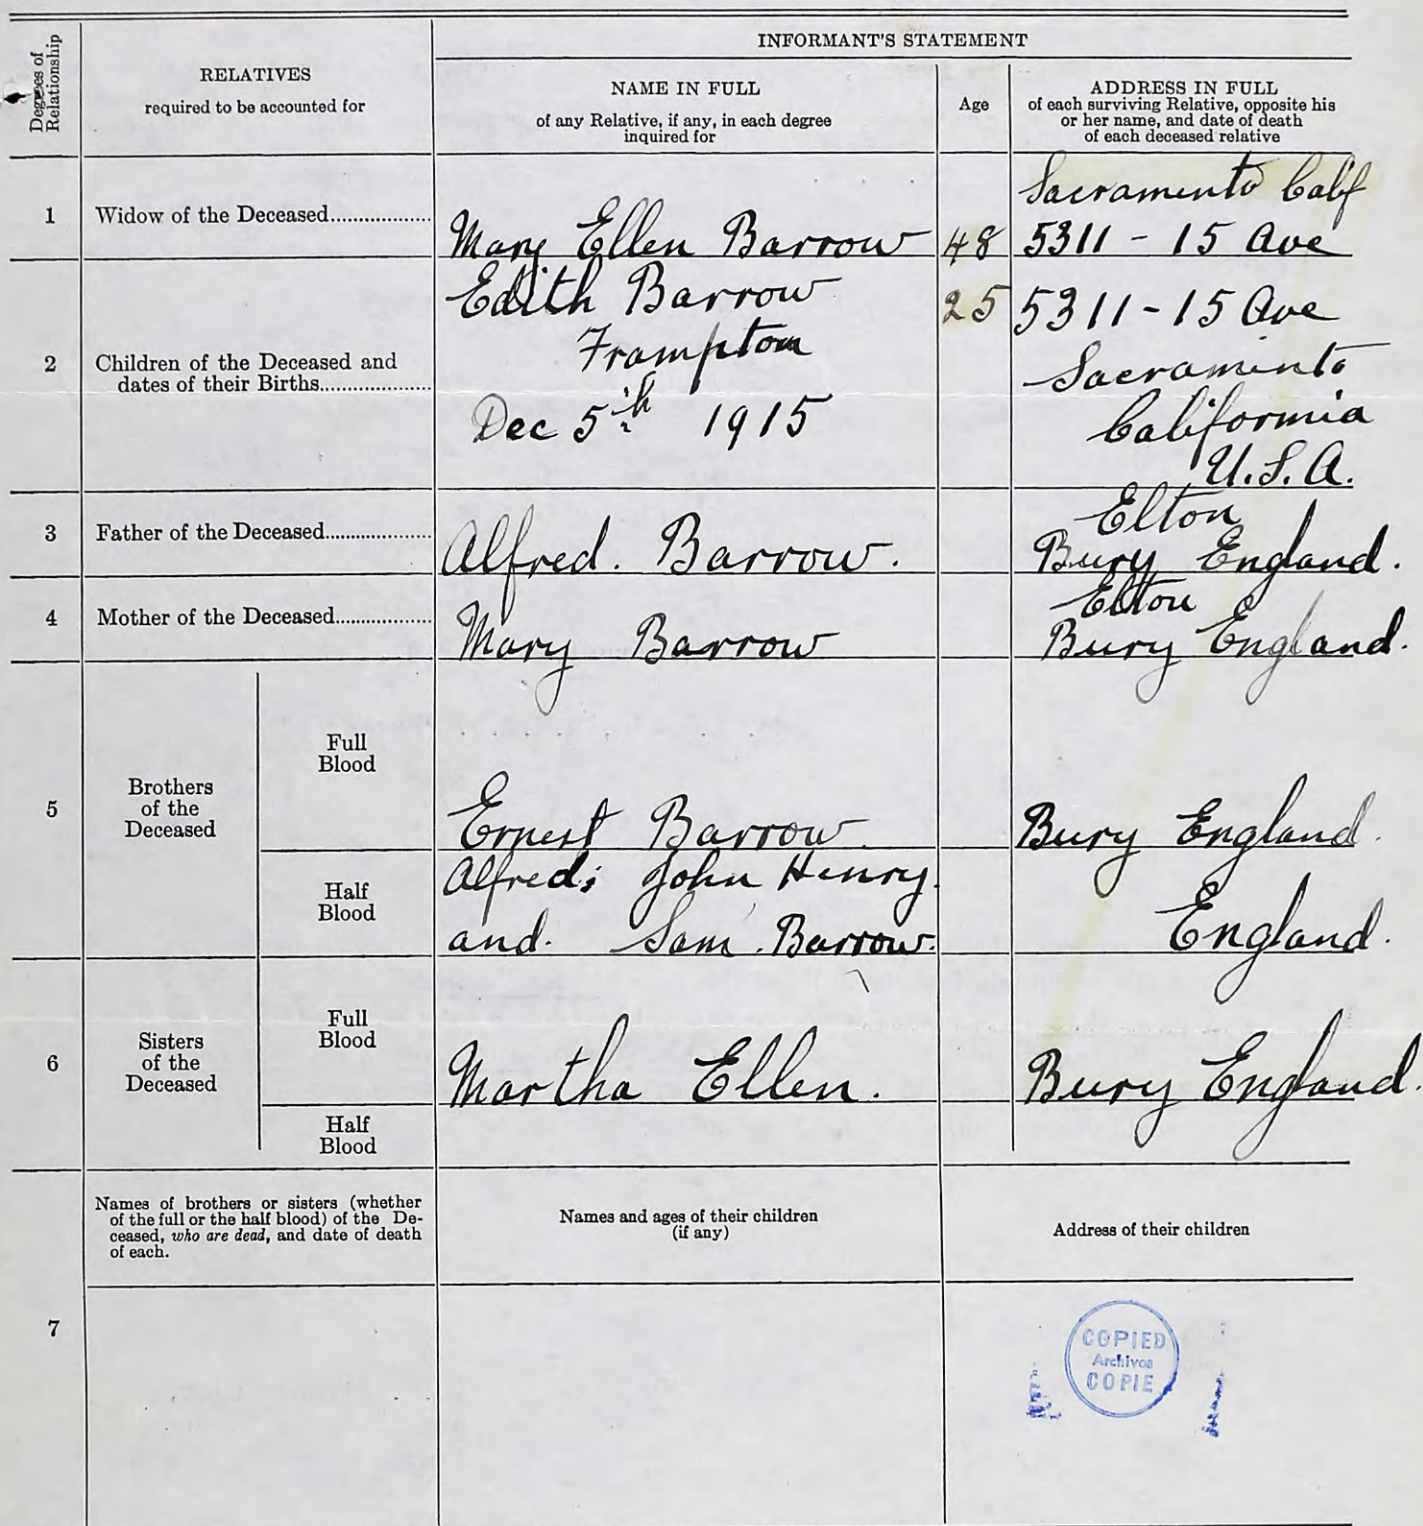 Degrees of
Relationship
RELATIVES
required to be accounted for
INFORMANT'S STATEMENT
NAME IN FULL
of any Relative, if any, in each degree
inquired for
Age
ADDRESS IN FULL
of each surviving Relative, opposite his
or her name, and date of death
of each deceased relative
1
Widow of the Deceased..................
Mary Ellen Barrow
48
Sacramento Calif
5311 - 15 Ave
2
Children of the Deceased and
dates of their Births....................
Edith Barrow
Frampton
Dec 5th 1915
25
5311 - 15 Ave
Sacraminto
California
U.S.A.
3
Father of the Deceased...................
Alfred. Barrow.
Elton
Bury England.
4
Mother of the Deceased.................
Mary Barrow
Elton
Bury England.
5
Brothers
of the
Deceased
Full
Blood
Ernest Barrow.
Bury England.
Half
Blood
Alfred; John Henry.
and. Sam. Barrow.
England.
6
Sisters
of the
Deceased
Full
Blood
Martha Ellen.
Bury England.
Half
Blood
7
Names of brothers or sisters (whether
of the full or the half blood) of the De-
ceased, who are dead, and date of death
of each.
Names and ages of their children
(if any)
Address of their children
COPIED
Archives
COPIE